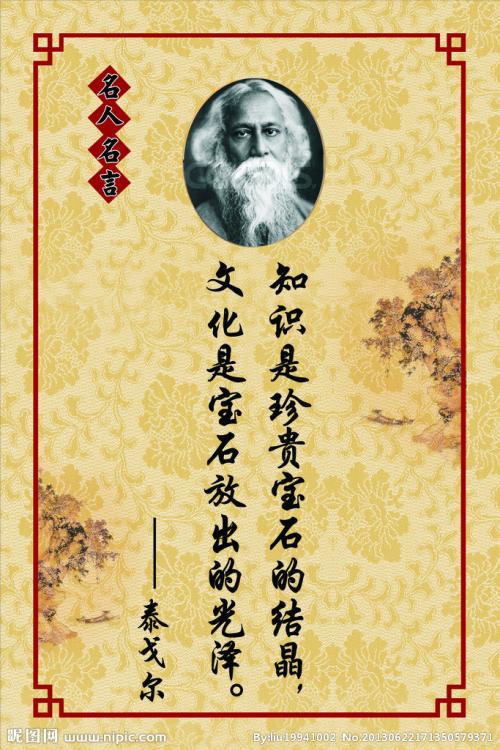 名人名言
知识是珍贵宝石的结晶，
文化是宝石放出的光泽。
——泰戈尔
昵图网 www.nipic.com
By:liu19941002 No.20130622171350579371